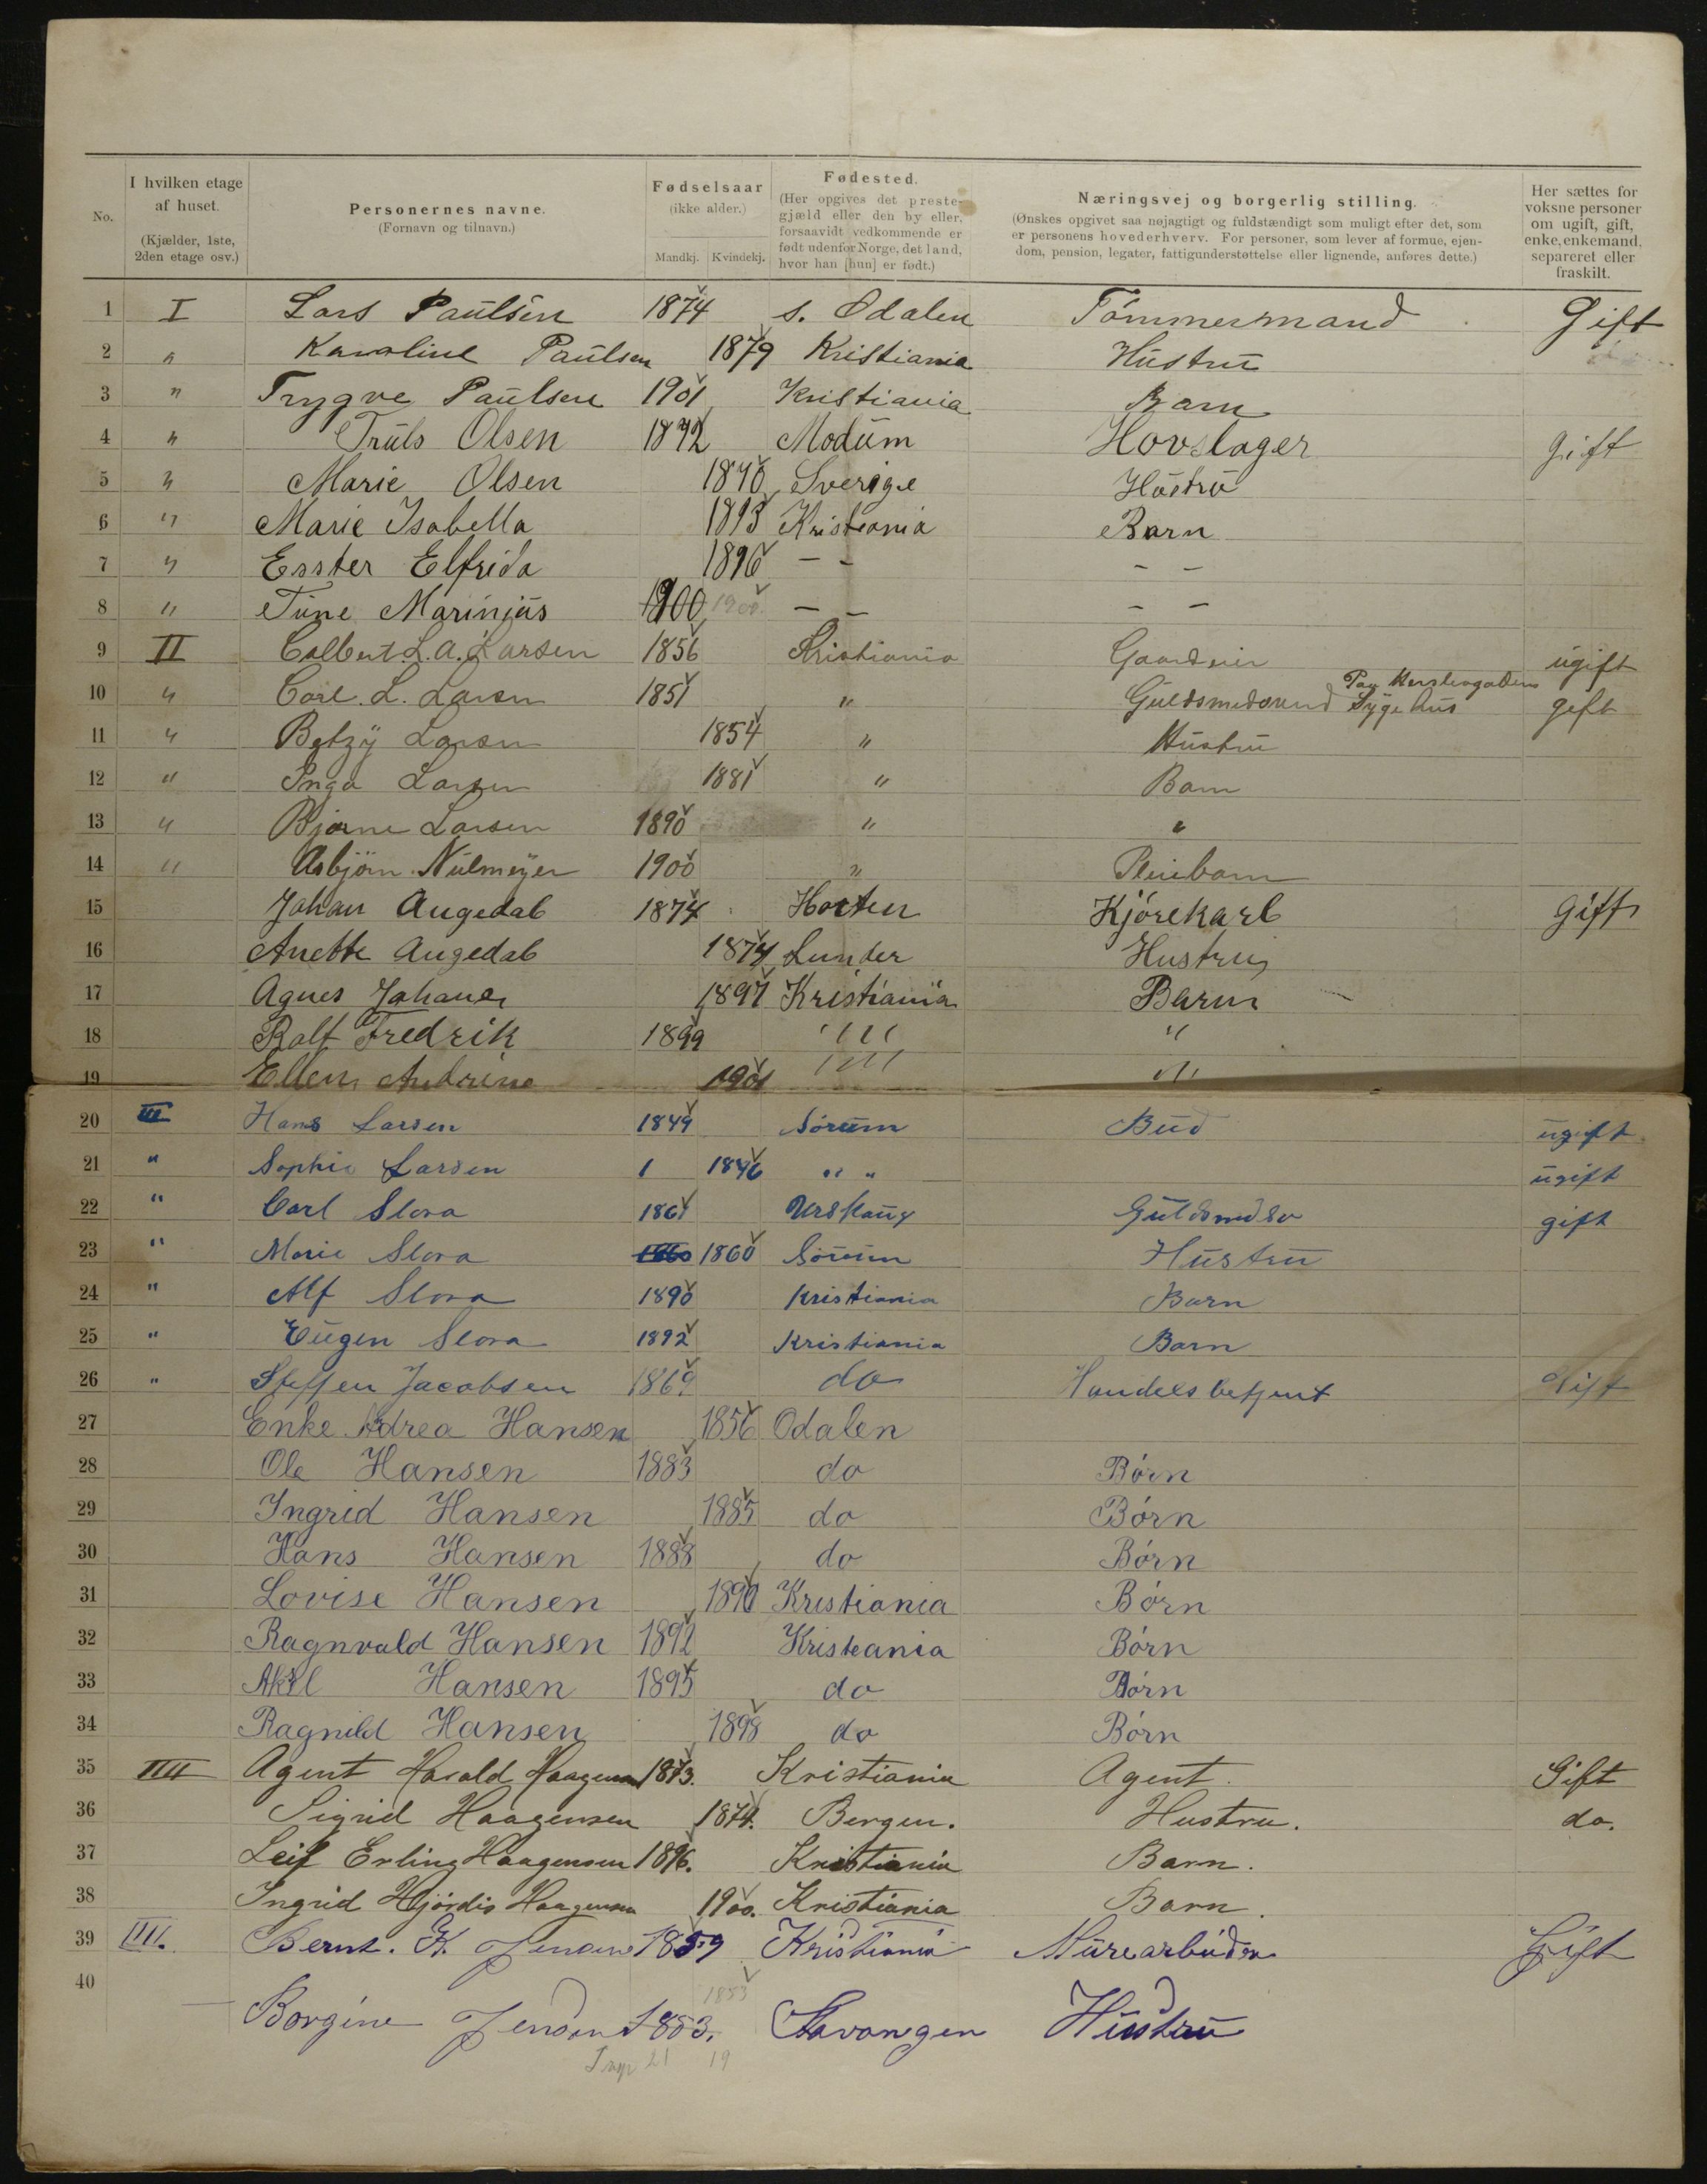 No.
I hvilken etage af huset. (Kjælder, 1ste, 2den etage osv.)
Personernes navne. (Fornavn og tilnavn.)
Fødselsaar (ikke alder.) Mandkj. Kvindekj.
Fødested. (Her opgives det prestegjæld eller den by eller, forsaavidt vedkommende er født udenfor Norge, det land, hvor han [hun] er født.)
Næringsvej og borgerlig stilling. (Ønskes opgivet saa nøjagtigt og fuldstændigt som muligt efter det, som er personens hovederhverv. For personer, som lever af formue, ejendom, pension, legater, fattigunderstøttelse eller lignende, anføres dette.)
Her sættes for voksne personer om ugift, gift, enke, enkemand, separeret eller fraskilt.
1 I Lars Paulsen 1874 S. Odalen Tømmermand Gift
2 " Karoline Paulsen 1879 Kristiania Hustru
3 " Trygve Paulsen 1901 Kristiania Barn
4 " Truls Olsen 1872 Modum Hovslager gift
5 " Marie Olsen 1870 Sverige Hustru
6 " Marie Isabella 1893 Kristiania Barn
7 " Esster Elfrida 1896 – – – –
8 " Tune Marinjus 1900 1900. – – – –
9 II L. A. Larsen 1856 Kristiania ugift
10 " Carl. L. Larsen 1851 " Guldsmedsvend Sygehus gift
11 " Betzy Larsen 1854 " Hustru
12 " Inga Larsen 1881 " Barn
13 " Bjarne Larsen 1890 " "
14 " Asbjørn 1900 " Pleiebarn
15 Johan Augedal 1874 Horten Kjørekarl Gift
16 Anette Augedal 1874 Lunder Hustru
17 Agnes Johane 1897 Kristiania Barn
18 Ralf Fredrik 1899 "" "
19 Ellen Andrine 1901 "" "
20 III Hans Larsen 1849 Sørum Bud ugift
21 " Sophie Larsen 1 1846 " " ugift
22 " Carl Slora 1861 Urskaug gift
23 " Marie Slora 1860 1860 Sørum Hustru
24 " Alf Slora 1890 Kristiania Barn
25 " Eugen Slora 1892 Kristiania Barn
26 " Steffen Jacobsen 1869 do Handelsbetjent Gift
27 Enke Adrea Hansen 1856 Odalen
28 Ole Hansen 1883 do Børn
29 Ingrid Hansen 1885 do Børn
30 Hans Hansen 1888 do Børn
31 Lovise Hansen 1890 Kristiania Børn
32 Ragnvald Hansen 1892 Kristeania Børn
33 Aksel Hansen 1895 do Børn
34 Ragnild Hansen 1898 do Børn
35 IIII Agent Harald Haagensen 1873. Kristiania Agent. Gift
36 Sigrid Haagensen 1874. Bergen. Hustru. do.
37 Leif Erling Haagensen 1896. Kristiania Barn.
38 Ingrid Hjørdis Haagensen 1900. Kristiania Barn.
39 IIII. Bernt. K. Jensen 1859 Kristiania Murearbeider Gift
40 1853
Borgine Jensen 1853. Stavangen Hustru
21 19